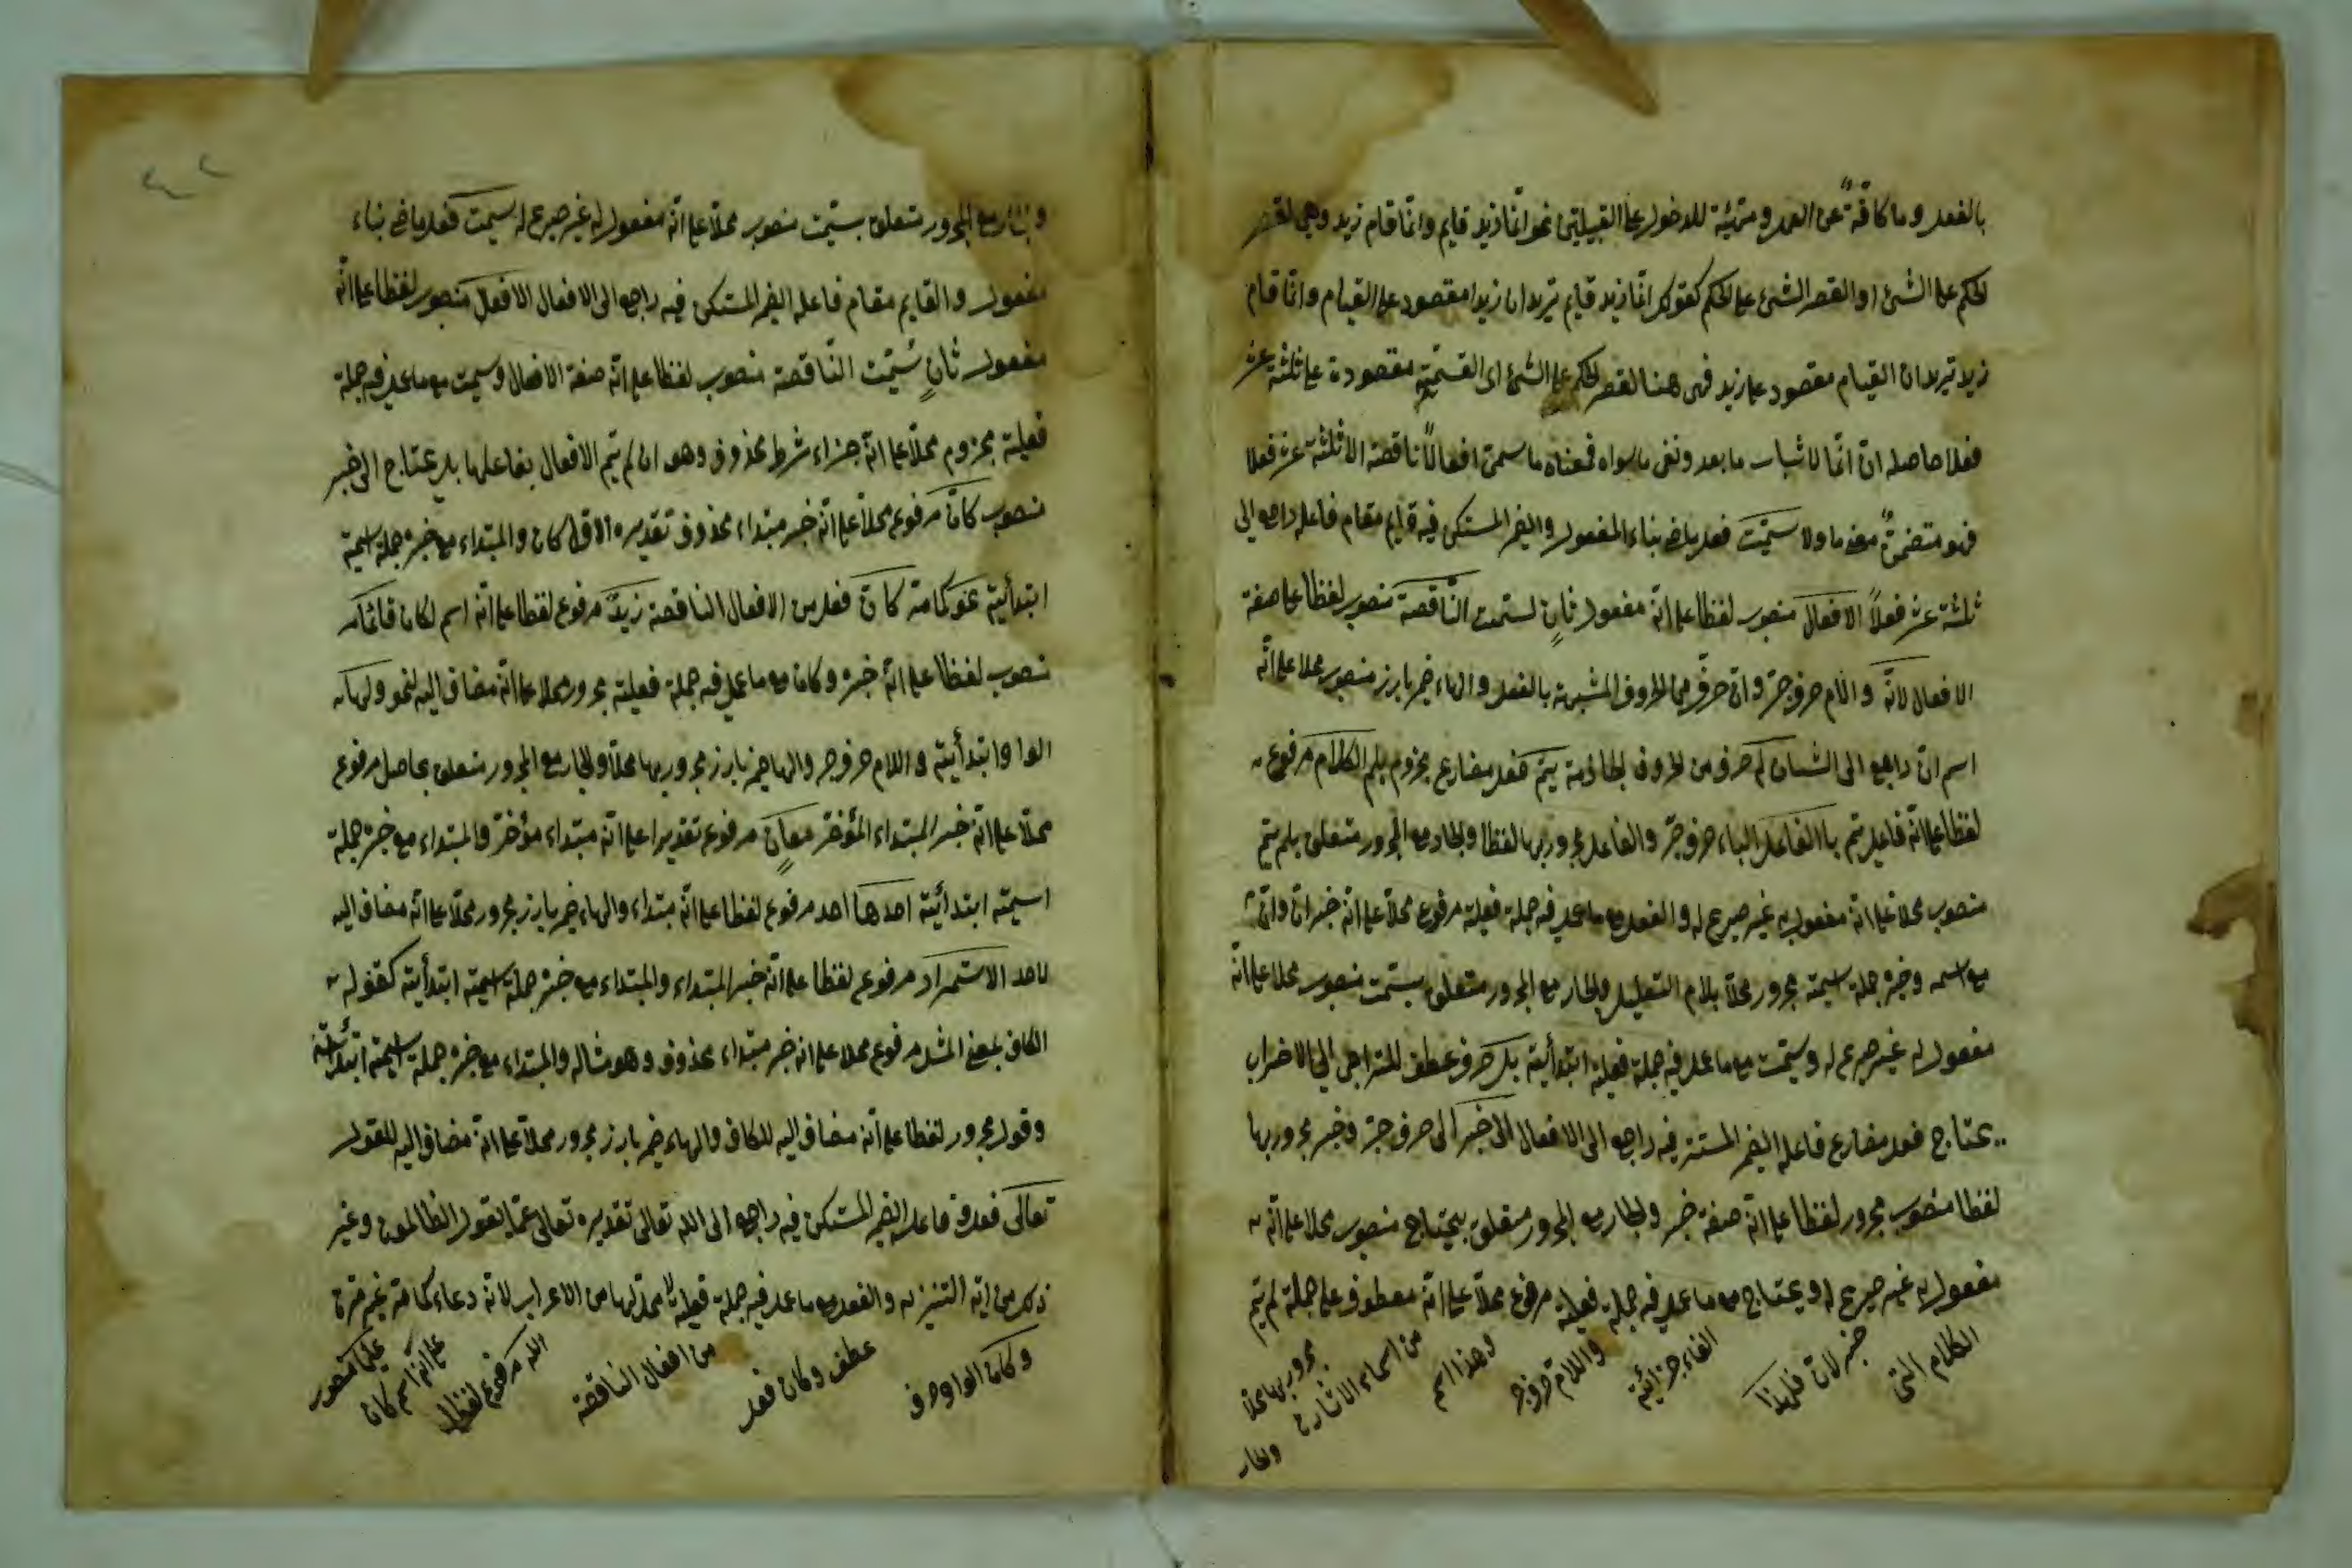 بالفعل وما كافّة عن العمل ومهيّئة للدخول على القبيلتين نحو انّما زيد قايم وانّما قام زيد وهى لقصر
الحكم على الشئ او القصر الشئ على الحكم كقولك انّما زيد قايم تريد ان زيدا مقصود على القيام وانّما قام
زيد تريد ان القيام مقصود على زيد فهى هنا لقصر الحكم على الشئ اى القسمية مقصودة على ثلثة عشر
فعلا حاصله انّ انّما لاثبات ما بعد ونفى ما سواه فمعناه ما سميت افعالًا ناقصة الا ثلثة عشر فعلا
فهو متضمن معنى ما ولا سمّيت فعل ماض بناء المفعول والضمير المستكن فيه قايم مقام فاعله راجع الى
ثلثة عشر فعلًا الافعال منصوب لفظا على انّه مفعول ثانٍ لسميت النّاقصة منصوب لفظا على صفة
الافعال لانّه والام حرف جرّ وانّ حرف من الحروف المشبهة بالفعل والهاء ضمير بارز منصوب محلا على انّه
اسم انّ راجع الى الشان لم حرف من الحروف الجازمة يتم فعل مضارع مجزوم بلم الكلام مرفوع
لفظا على انّه فاعل يتم باالفاعل الباء حرف جرّ والفاعل مجرور بها لفظا والجار مع المجرور متعلق بلم يتم
منصوب محلا على انّه مفعول به غير صريح له والفعل مع ما عمل فيه جملة فعلية مرفوع محلّا على انّه خبر انّ وانّ
مع اسمه وخبره جملة اسمية مجرور محلّا بلام التعليل والجار مع المجرور متعلق بسميت منصوب محلا على انّه
مفعول له غير صريح له وسميت مع ما عمل فيه جملة فعلية ابتدأئية بل حرف عطف للتراخى الى الاضراب
يحتاج فعل مضارع فاعله الضمير المستتر فيه راجع الى الافعال الى خبر الى حرف جرّ وخبر مجرور بها
لفظا منصوب مجرور لفظا على انّه صفة خبر والجار مع المجرور متعلق بيحتاج منصوب محلا على انّه
مفعول به غير صريح له ويحتاج مع ما عمل فيه جملة فعلية مرفوع محلّا على انّه معطوف على جملة لم يتم
الكلام التى
خبر لانّ فلهذا
الفاء جزائية
واللام حرف جر
وهذا اسم
من اسماء الاشارة
مجرور بها محلا
والجار
والجار مع المجرور متعلق بسميت منصوب محلّا على انّه مفعول له غير صريح له سميت فعل ماض بناء
مفعول والقايم مقام فاعله الضمير المستكن فيه راجع الى الافعال الافعال منصوب لفظا على انّه
مفعول ثانٍ سميت النّاقصة منصوب لفظا على انّه صفة الافعال وسميت مع ما عمل فيه جملة
فعلية مجزوم محلّا على انّه جزاء شرط محذوف وهو ان لم يتم الافعال بفاعلها بل يحتاج الى خبر
منصوب كان مرفوع محلّا على انّه خبر مبتداء محذوف تقديره الاوّل كان والمبتداء مع خبره جملة اسمية
ابتدأئية نحو كما مر كان فعل من الافعال الناقصة زيد مرفوع لفظا على انّه اسم لكان قائما
منصوب لفظا على انّه خبره وكان مع ما عمل فيه جملة فعلية مجرور محلا على انّه مضاف اليه لنحو ولها
الوا وابتدأئية واللام حرف جر والها ضمير بارز مجرور بها محلّا والجار مع المجرور متعلق بحاصل مرفوع
محلّا على انّه خبر المبتداء المؤخّر معانٍ مرفوع تقديرا على انّه مبتداء مؤخرّ والمبتداء مع خبره جملة
اسمية ابتدأئية احدها احد مرفوع لفظا على انّه مبتداء والهاء ضمير بارز مجرور محلّا على انّه مضاف اليه
لاحد الاستمرار مرفوع لفظا على انّه خبر المبتداء والمبتداء مع خبره جملة اسمية ابتدأئية كقوله
الكاف بمعنى المثل مرفوع محلا على انه خبر مبتداء محذوف وهو مثاله والمبتداء مع خبره جملة اسمية ابتدأئية
وقول مجرور لفظا على أنّه مضاف اليه للكاف والهاء ضمير بارز مجرور محلّا على انّه مضاف اليه للقول
تعالى فعل وفاعله الضمير المستكن فيه راجع الى الله تعالى تقديره تعالى عمّا يقول الظالمون وغير
ذلك من التنزيه والفعل مع ما عمل فيه جملة فعلية لا محل لها من الاعراب لانّه دعاء كما مر غير مرة
وكان الواو حرف
عطف وكان فعل
من افعال الناقصة
الله مرفوع لفظا
على انّه اسم كان
عليما منصوب